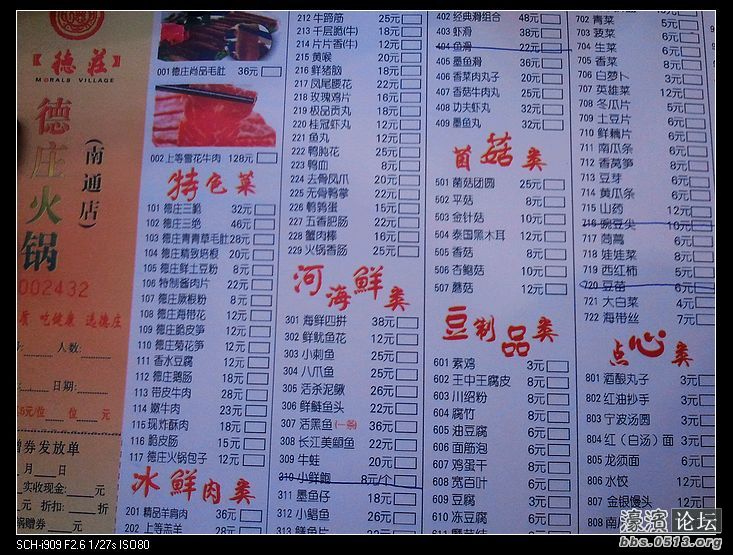 德莊
MORALS VILLAGE
德庄火锅
(南通店)
002432
吃健康 选德庄
人数:
日期:
位 元
赠券发放单
月 日
实收现金: 元
折扣: 折
锅赠券 元
001 德庄尚品毛肚 36元
002 上等雪花牛肉 128元
特色菜
101 德庄三脆 32元
102 德庄三绝 46元
103 德庄青青草毛肚 28元
104 德庄精致培根 20元
105 德庄鲜土豆粉 8元
106 特制酱肉片 22元
107 德庄厥根粉 8元
108 德庄海带花 12元
109 德庄脆皮笋 12元
110 德庄菊花笋 12元
111 香水豆腐 12元
112 德庄鹅肠 18元
113 带皮牛肉 28元
114 嫩牛肉 23元
115 现炸酥肉 18元
116 脆皮肠 15元
117 德庄火锅包子 12元
冰鲜肉类
201 精品羊肩肉 26元
202 上等羔羊 28元
212 牛蹄筋 25元
213 千层脆(牛) 18元
214 片片香(牛) 12元
215 黄喉 20元
216 鲜猪脑 18元
217 凤尾腰花 22元
218 玫瑰鸡片 16元
219 极品贡丸 18元
220 桂冠虾丸 18元
221 鱼丸 12元
222 鸭胗花 25元
223 鸭血 8元
224 去骨凤爪 20元
225 无骨鸭掌 25元
226 鹌鹑蛋 15元
227 五香肥肠 15元
228 蟹肉棒 16元
229 火锅香肠 25元
河海鲜类
301 海鲜四拼 38元
302 鲜鱿鱼花 12元
303 小刺鱼 25元
304 八爪鱼 25元
305 活杀泥鳅 26元
306 鲜鲢鱼头 22元
307 活黑鱼(一条) 36元
308 长江美蛔鱼 22元
309 牛蛙 20元
310 小鲜鲍 8元/个
311 墨鱼仔 18元
312 小鲳鱼 26元
402 经典滑组合 48元
403 虾滑 38元
404 鱼滑 22元
405 墨鱼滑 36元
406 香菜肉丸子 20元
407 香菇牛肉丸 25元
408 功夫虾丸 32元
409 墨鱼丸 32元
菌菇类
501 菌菇团圆 25元
502 平菇 8元
503 金针菇 10元
504 泰国黑木耳 12元
505 香菇 8元
506 杏鲍菇 10元
507 蘑菇 12元
豆制品类
601 素鸡 3元
602 王中王腐皮 8元
603 川绍粉 8元
604 腐竹 8元
605 油豆腐 6元
606 面筋泡 6元
607 鸡蛋干 8元
608 宽百叶 6元
609 豆腐 3元
610 冻豆腐 6元
702 青菜 5元
703 菠菜 6元
704 生菜 6元
705 香菜 8元
706 白萝卜 3元
707 英雄菜 12元
708 冬瓜片 5元
709 土豆片 5元
710 鲜藕片 6元
711 南瓜条 5元
712 香莴笋 8元
713 豆芽 6元
714 黄瓜条 6元
715 山药 12元
716 豌豆尖 10元
717 茼蒿 6元
718 娃娃菜 8元
719 西红柿 5元
720 豆苗 6元
721 大白菜 4元
722 海带丝 7元
点心类
801 酒酿丸子 3元
802 红油抄手 3元
803 宁波汤圆 3元
804 红(白汤)面 3元
805 龙须面 6元
806 水饺 12元
807 金银馒头 12元
808
SCH-i909 F2.6 1/27s ISO80
濠滨论坛
bbs.0513.org